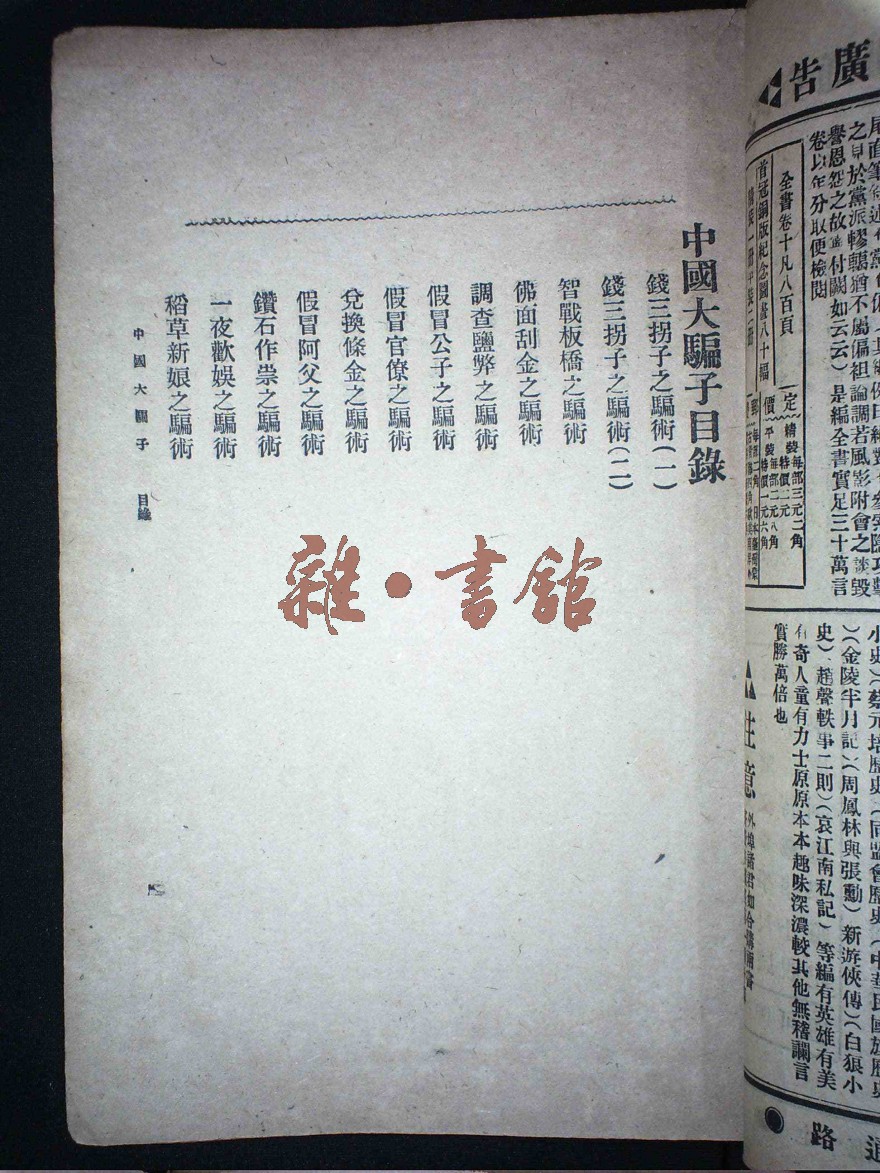 中國大騙子目錄
錢三拐子之騙術(一)
錢三拐子之騙術(二)
智戰板橋之騙術
佛面刮金之騙術
調查鹽弊之騙術
假冒公子之騙術
假冒官僚之騙術
兌換條金之騙術
假冒阿父之騙術
鑽石作祟之騙術
一夜歡娛之騙術
稻草新娘之騙術
中國大騙子 目錄
雜·書館
廣告
之見於黨派轇轕猶不屬偏袒論調若風影附會之談毀
譽恩怨之故 付闕如云云)是編全書實足三十萬言
卷以年分取便檢閱
全書卷十凡八百頁
首冠銅版紀念圖畫八十幅
定價
精裝每部三元二角
特價二元
平裝每部二元八角
特價一元六角
小史)(蔡元培歷史)(同盟會歷史)(中華民國旅歷史
)(金陵半月記)(周鳳林與張勳)新游俠傳)(白狼小
史)趙聲軼事二則)(哀江南私記)等編有英雄有美
有奇人童有力士原原本本趣味深濃較其他無稽讕言
實勝萬倍也
注意
通路